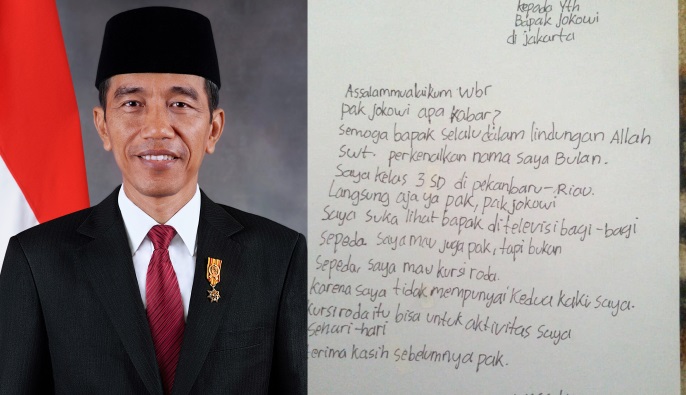 kepada Yth
Bapak Jokowi
di jakarta
Assalammualaikum wbr
pak jokowi apa kabar?
semoga bapak selalu dalam lindungan Allah
swt. perkenalkan nama saya Bulan.
Saya kelas 3 SD di pekanbaru-Riau.
Langsung aja ya pak, pak jokowi
Saya suka lihat bapak di televisi bagi-bagi
sepeda saya mau juga pak, tapi bukan
sepeda, saya mau kursi roda.
karena saya tidak mempunyai kedua kaki saya.
kursi roda itu bisa untuk aktivitas saya
sehari-hari
terima kasih sebelumnya pak.